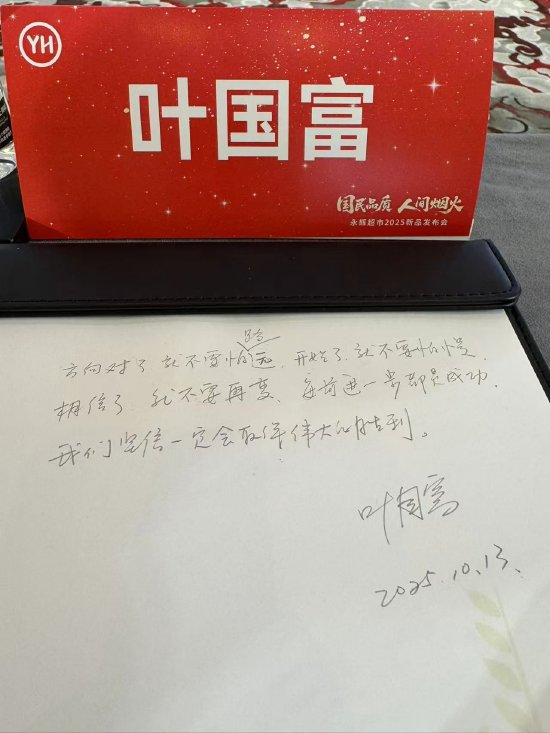 YH
叶国富
国民品质 人间烟火
永辉超市2025新品发布会
路
方向对了,就不要怕远,开始了,就不要怕慢,
相信了,就不要再变,每前进一步都是成功,
我们坚信一定会取得伟大的胜利。
叶国富
2025.10.13.